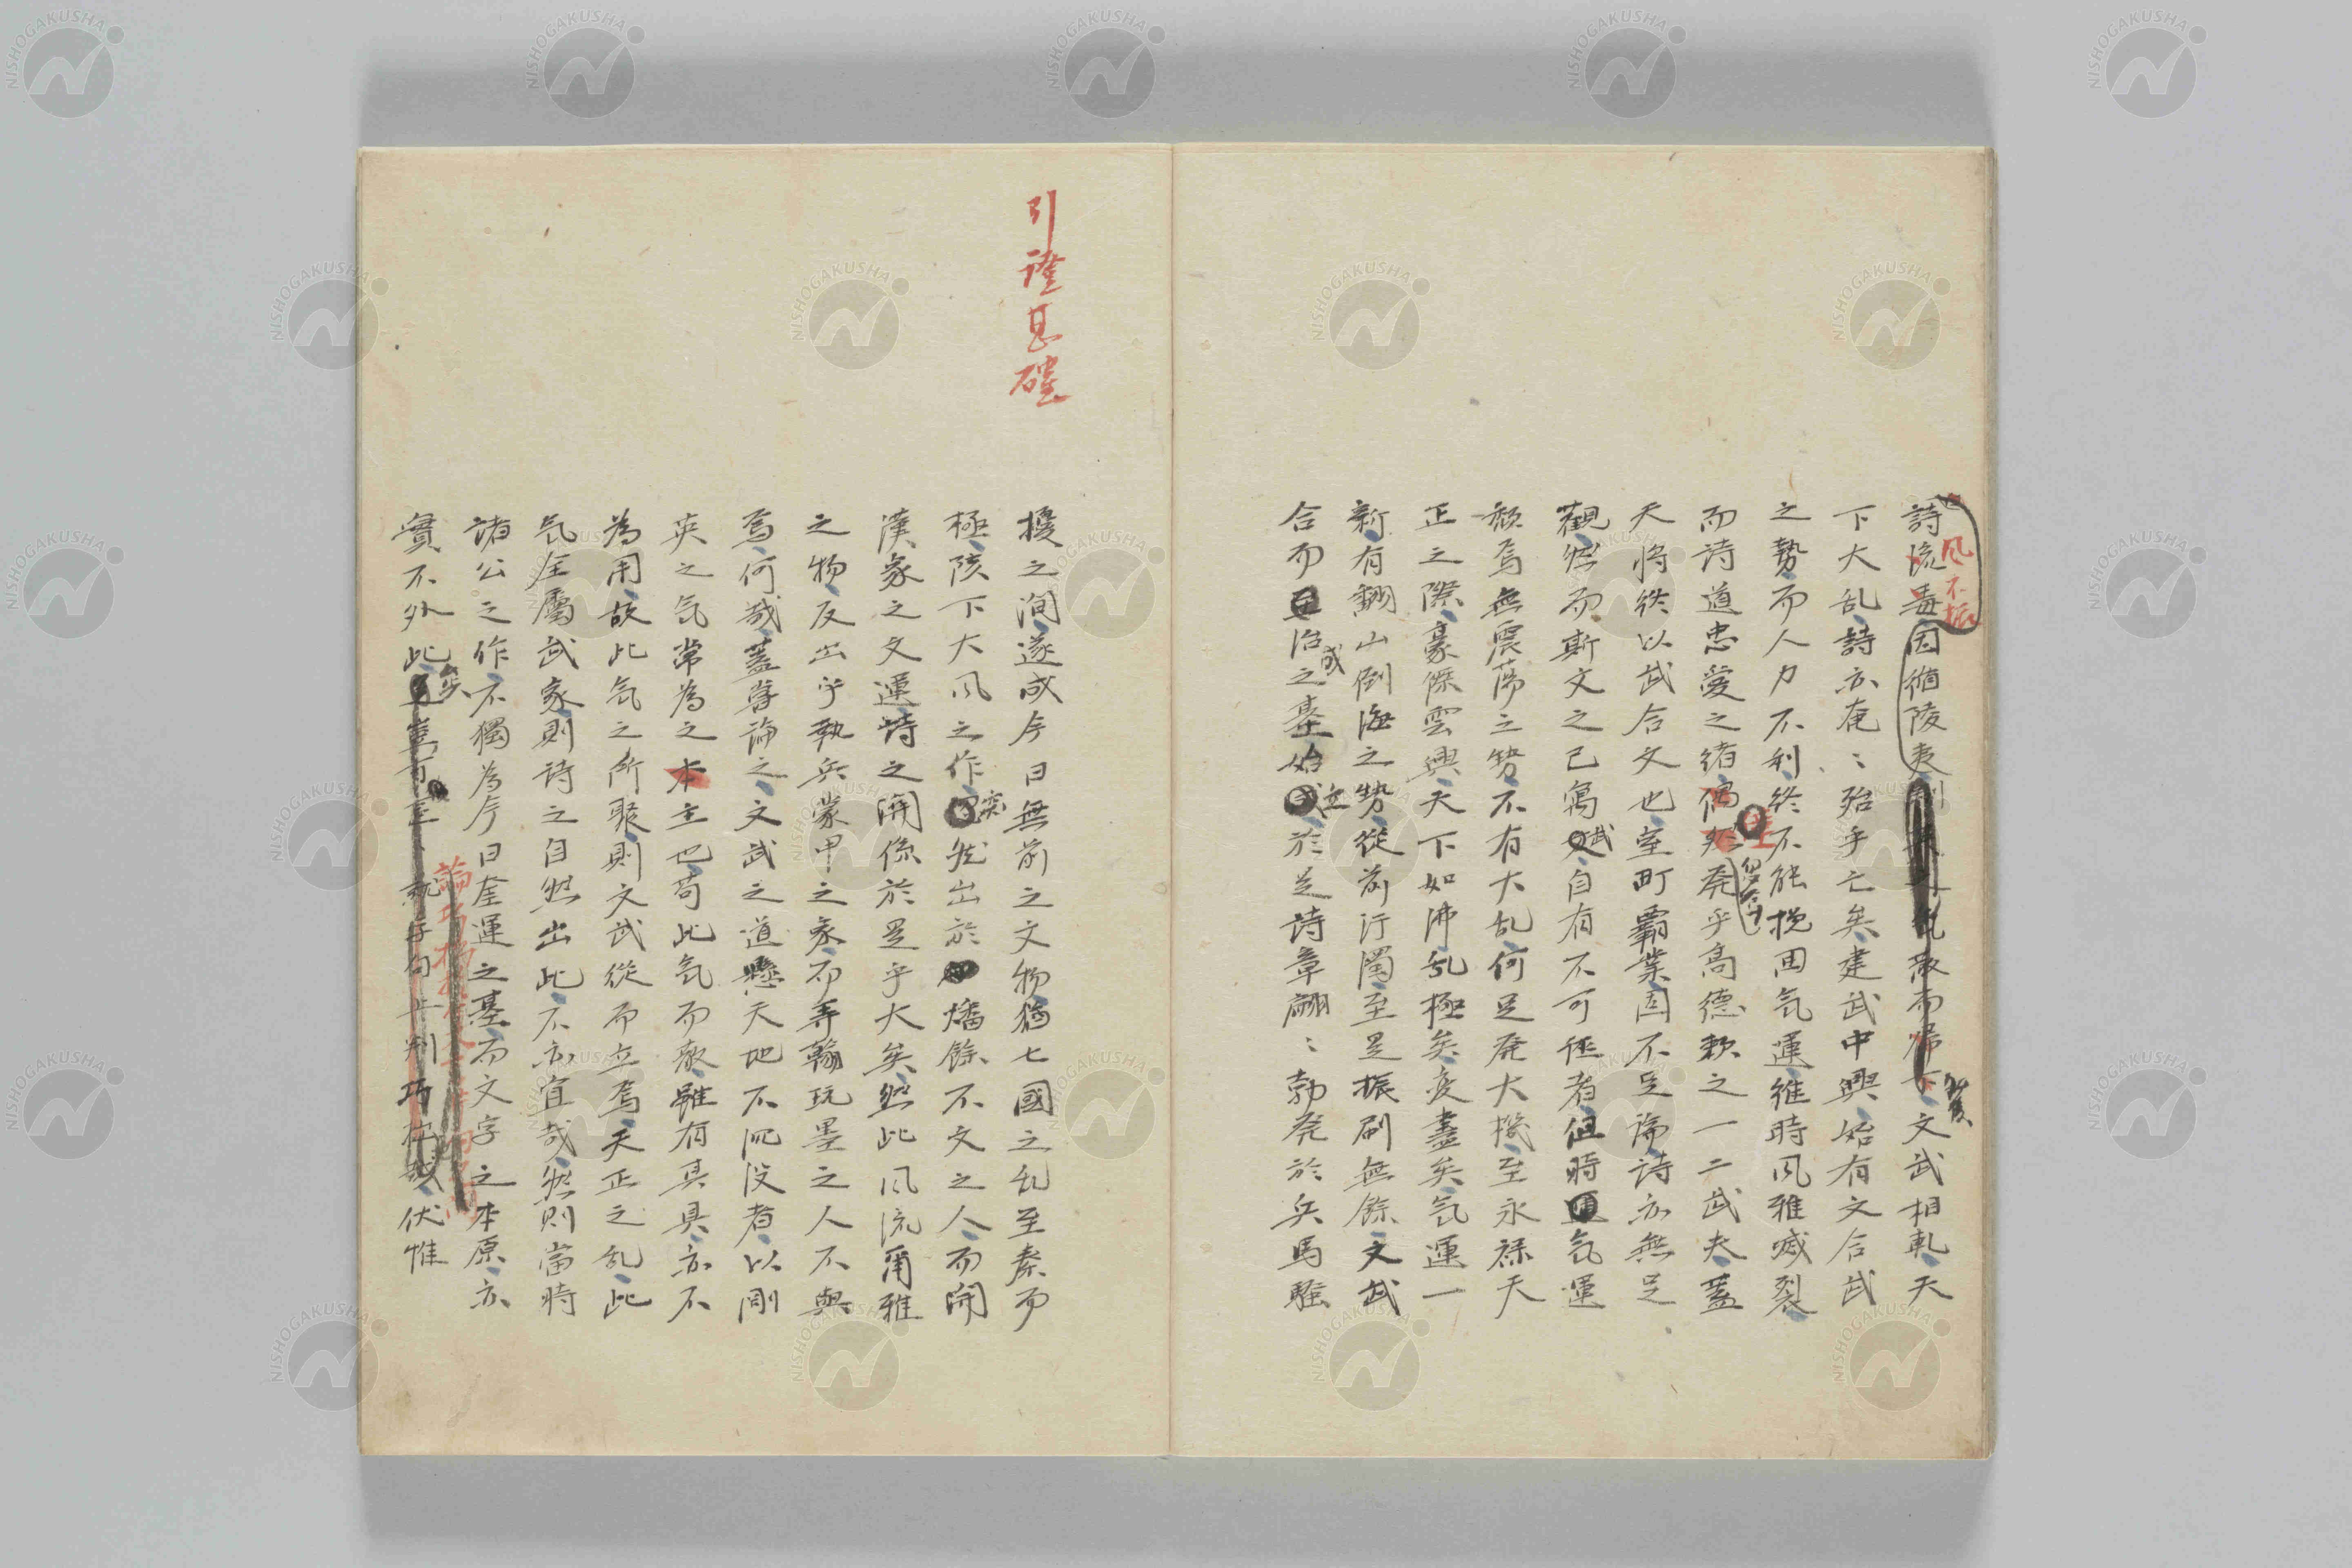 詩流毒因循陵夷散而帰下文武相軋天
風不振
下大乱詩亦奄〻殆乎亡矣建武中興始有文合武
之勢而人力不利終不能挽回気運維時風雅滅裂
而詩道忠愛之緒偶然発乎高徳輩之一二武夫蓋
天将終以武合文也室町覇業固不足論詩亦無足
観然而斯文之已寓武自有不可徑者但時気運
頽焉無震蕩之勢不有大乱何足発大機至永禄天
正之際豪傑雲興天下如沸乱極矣変盡矣気運一
新有翻山倒海之勢從前汚濁至是振刷無餘文武
合而治成之基始立於是詩章翩〻勃発於兵馬騒
引證甚確
擾之间遂成今日無前之文物猶七國之乱至秦而
極陔下大風之作突然出於燔餘不文之人而開
漢家之文運詩之関係於是乎大矣然此風流爾雅
之物反出乎執兵蒙甲之家而弄翰玩墨之人不與
焉何哉蓋嘗論之文武之道懸天地不汜没者以剛
英之気常為之本主也苟此気而歉雖有其具亦不
為用故此気之所聚則文武從而立焉天正之乱此
気全屬武家則詩之自然出此不亦宜哉然則當時
諸公之作不獨為今日奎運之基而文字之本原亦
實不外此矣伏惟